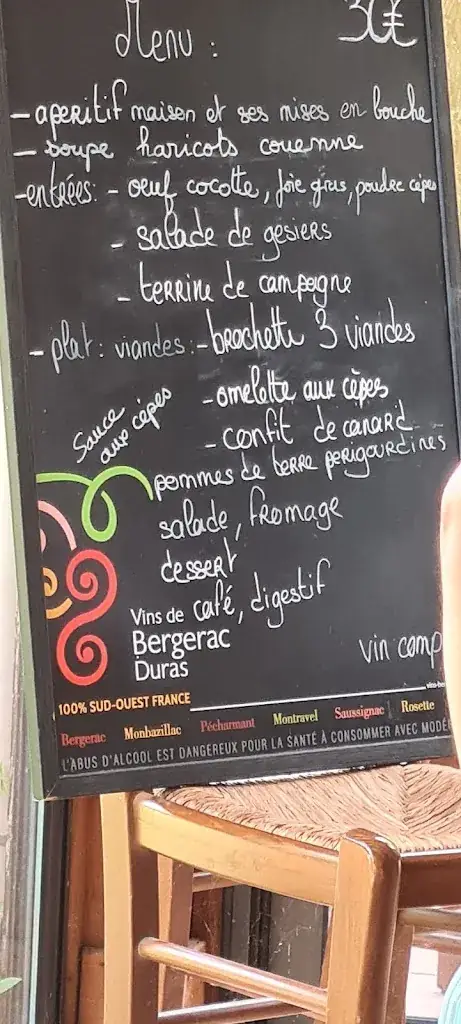 Menu : 30€
- aperitif maison et ses mises en bouche
- soupe haricots couenne
- entrées: - oeuf cocotte, foie gras, poudre cèpes
- salade de gesiers
- terrine de campagne
- plat: viandes: - brochette 3 viandes
- omelette aux cèpes
Sauce aux cèpes
- confit de canard
pommes de terre perigourdines
salade, fromage
dessert
café, digestif
Vins de
Bergerac
Duras
vin comp
100% SUD-OUEST FRANCE
Bergerac Monbazillac Pécharmant Montravel Saussignac Rosette
L'ABUS D'ALCOOL EST DANGEREUX POUR LA SANTÉ À CONSOMMER AVEC MODÉ